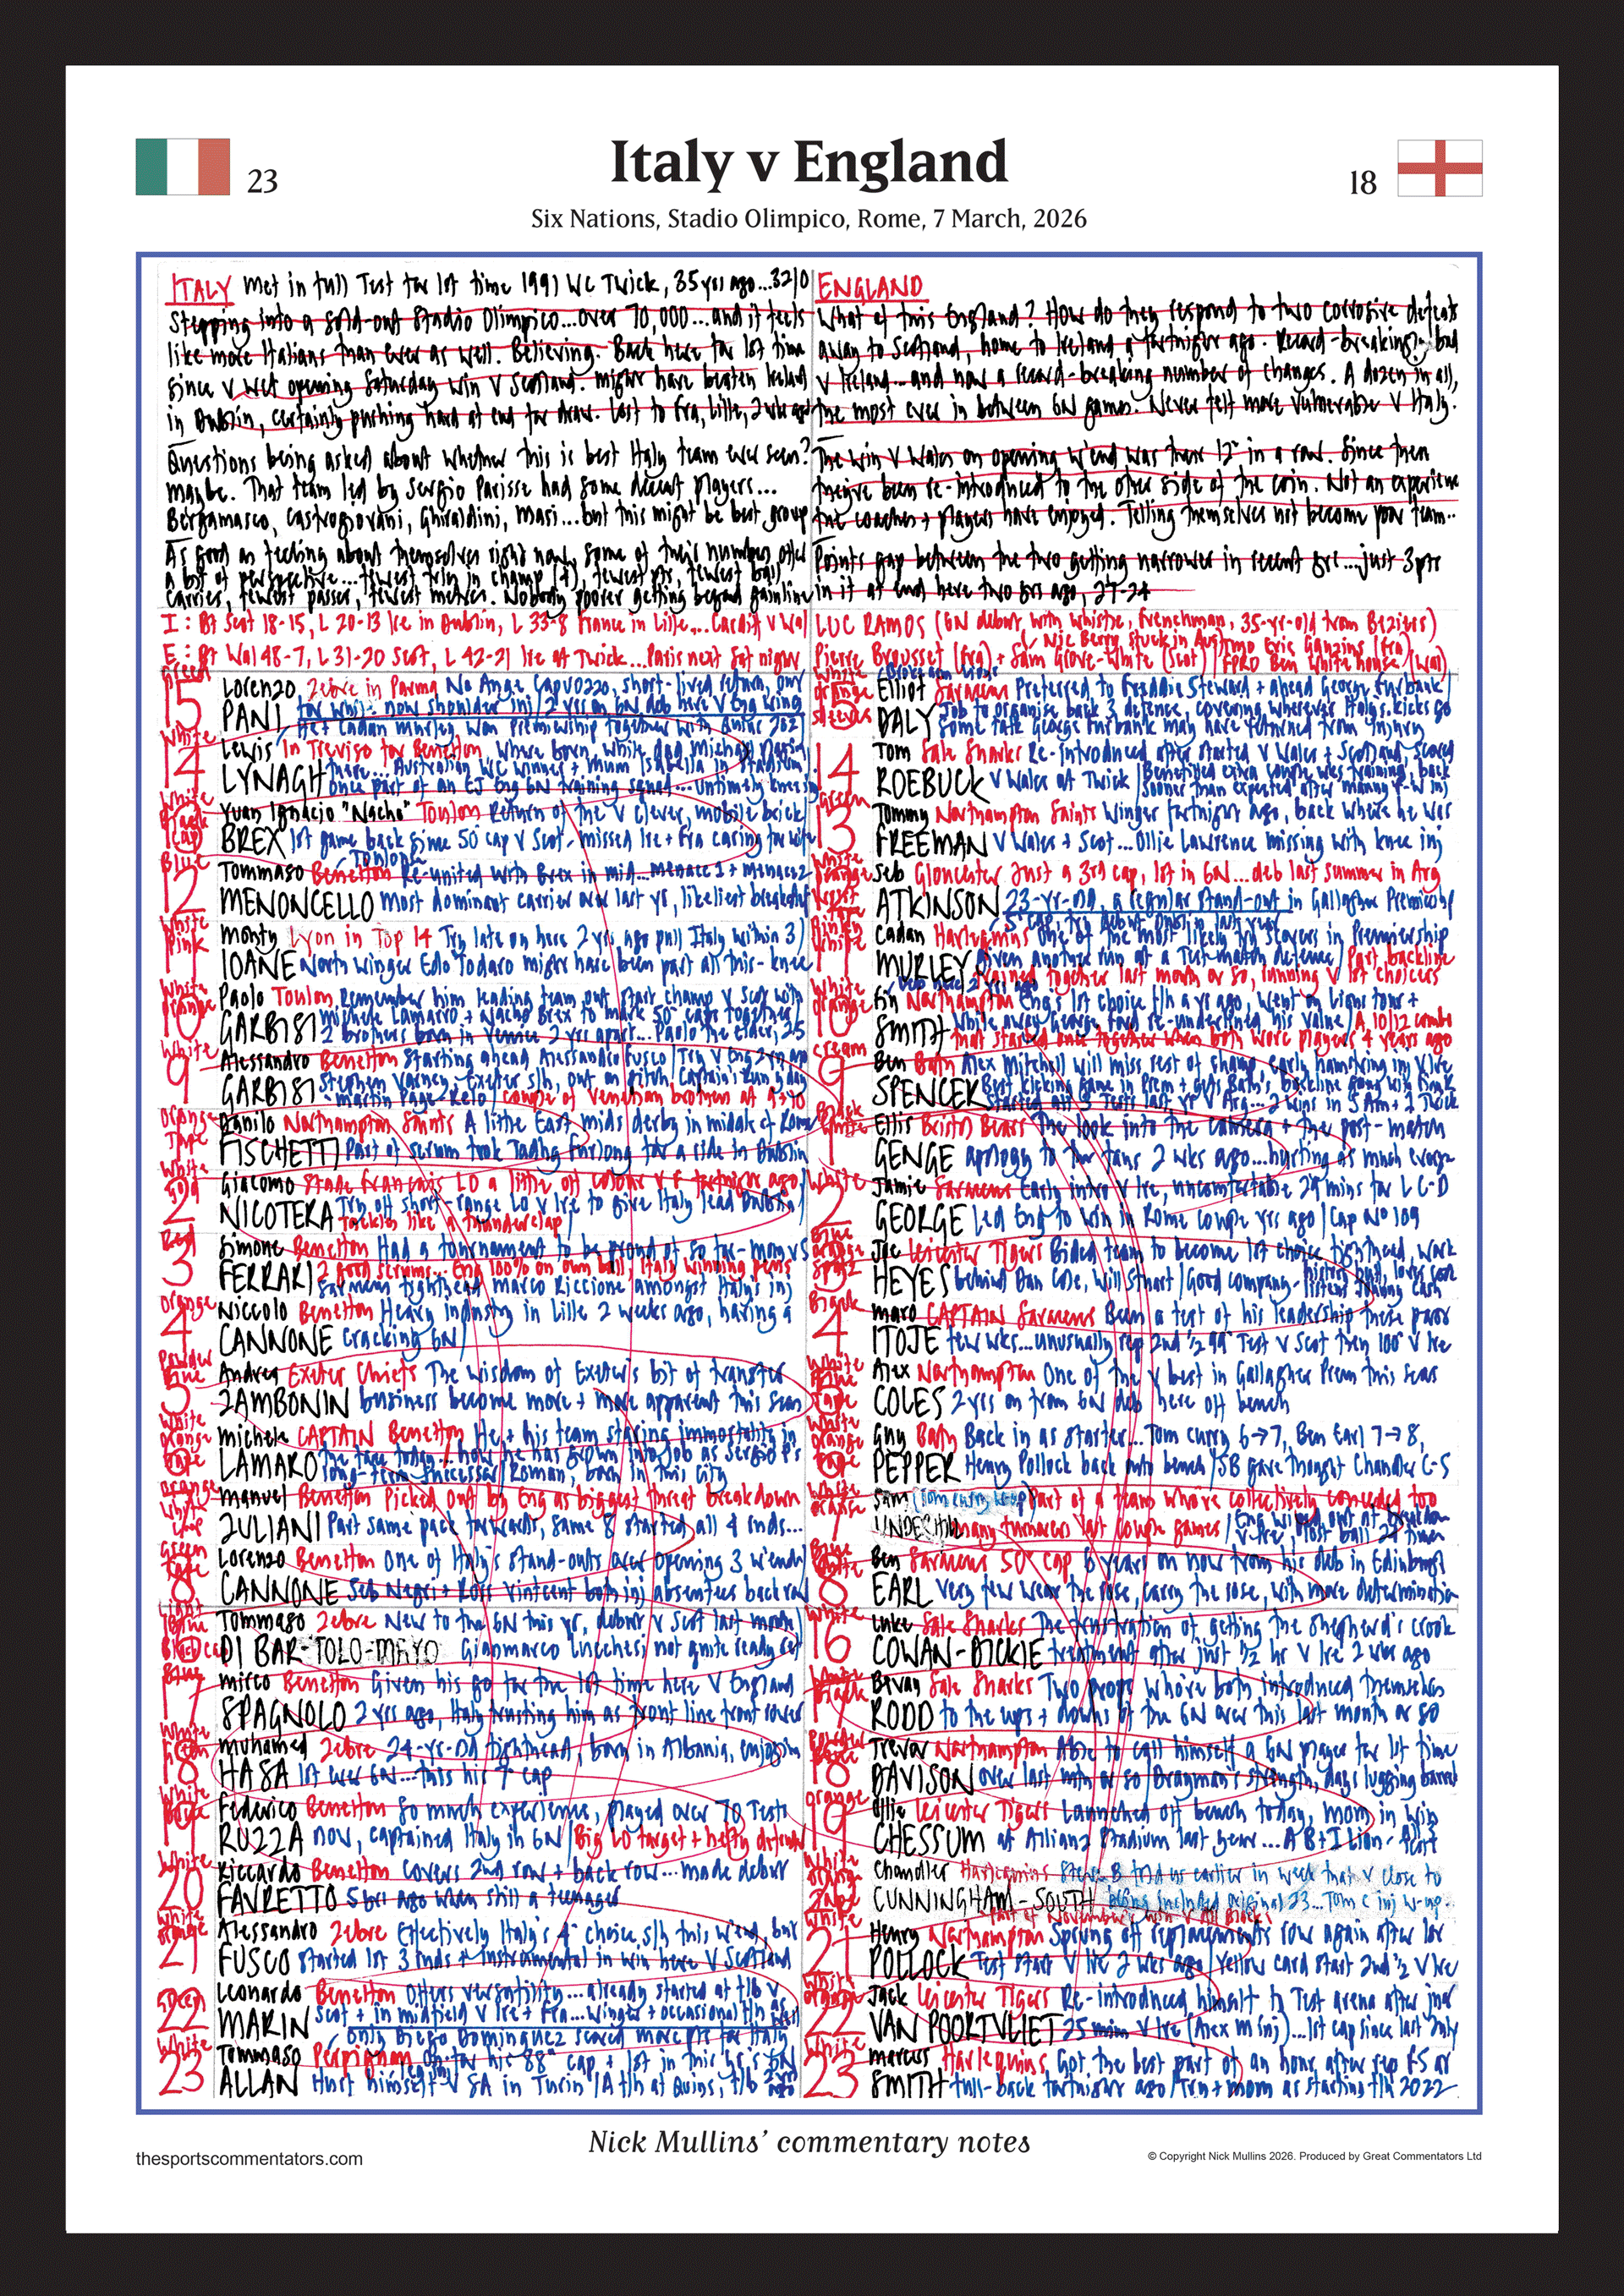 23
Italy v England
18
Six Nations, Stadio Olimpico, Rome, 7 March, 2026
ITALY Met in full Test for 1st time 1991 WC Twick, 35 yrs ago...
Stepping into a sold-out Stadio Olimpico...over 70,000...and it feels
like more Italians than ever as well. Believing. Back here for 1st time
since v wet opening Saturday win v Scotland. Might have beaten Ireland
in Dublin, certainly pushing hard at end for draw. Lost to Fra, Lille, 2 wk ago
Questions being asked about whether this is best Italy team ever seen?
Maybe. That team led by Sergio Parisse had some decent players...
Bergamasco, Castrogiovani, Ghiraldini, Masi...but this might be best group
As good as feeling about themselves right now, some of their numbers offer
a bit of perspective...fewest trys in champ (7), fewest pts, fewest ball
carries, fewest passes, fewest metres. Nobody poorer getting beyond gainline
I: Bt Scot 18-15, L 20-13 Ire in Dublin, L 33-8 France in Lille...Cardiff v Wal
E: Bt Wal 48-7, L 31-20 Scot, L 42-21 Ire at Twick...Paris next Sat night
ENGLAND
What of this England? How do they respond to two corrosive defeats
away to Scotland, home to Ireland a fortnight ago. Record-breaking bad
v Ireland...and now a record-breaking number of changes. A dozen in all,
the most ever in between 6N games. Never felt more vulnerable v Italy.
The win v Wales on opening w'end was their 12th in a row. Since then
they've been re-introduced to the other side of the coin. Not an experience
the coaches + players have enjoyed. Telling themselves not become poor team..
Points gap between the two getting narrower in recent yrs....just 3pts
in it at end here two yrs ago, 27-24
LUC RAMOS (6N debut with whistle, Frenchman, 35-yr-old from Beziers)
Nic Berry stuck in Aus
Pierre Brousset (Fra) + Sam Grove-White (Scot) TMO Eric Gauzins (Fra) FPRO Ben Whitehouse (Wal)
15 Lorenzo PANI Zebre in Parma No Ange Capuozzo, short-lived return, out
14 Lewis LYNAGH In Treviso for Benetton, where born, while dad Michael
Australian WC winner + mum Isabella in stadium
once part of an EJ Eng 6N training squad...untimely knee inj
13 Yuan Ignacio "Nacho" BREX Toulon Return of the v clever, mobile brick
1st game back since 50th cap v Scot - missed Ire + Fra caring for wife
12 Tommaso MENONCELLO Benetton Re-united with Brex in mid...menace 1 + menace 2
most dominant carrier over last yr, likeliest breakout
11 Monty IOANE Lyon in Top 14 Try late on here 2 yrs ago pull Italy within 3
North winger Edo Todaro might have been part all this - knee
10 Paolo GARBISI Toulon Remember him leading team out start champ v Scot with
Michele Lamaro + Nacho Brex to mark 50 caps together
2 brothers born in Venice 2 yrs apart...Paolo the elder, 25
9 Alessandro GARBISI Benetton Starting ahead Alessandro Fusco
Stephen Varney, Exeter s/h, out
Martin Page-Relo couple of Venetian brothers at 9+10
1 Danilo FISCHETTI Northampton Saints A little East mids derby in middle of Rome
Part of scrum took Tadhg Furlong for a ride in Dublin
2 Giacomo NICOTERA Stade Francais LO a little off colour v F fortnight ago
Try off short-range LO v Ire to give Italy lead Dublin
tackles like a thunderclap
3 Simone FERRARI Benetton Had a tournament to be proud of so far - mon v S
2 good scrums...Eng 100% on own ball, Italy winning pens
Saracens tighthead Marco Riccioni amongst Italy's inj
4 Niccolo CANNONE Benetton Heavy industry in Lille 2 weeks ago, having a
cracking 6N
5 Andrea ZAMBONIN Exeter Chiefs The wisdom of Exeter's bit of transfer
business become more + more apparent this seas
6 Michele LAMARO CAPTAIN Benetton He + his team staring immortality in
the face today...how he has grown into job as Sergio P's
long-term successor Roman, born in this city
7 Manuel ZULIANI Benetton Picked out by Eng as biggest threat breakdown
Part same pack forwards, same 8 started all 4 rnds...
8 Lorenzo CANNONE Benetton One of Italy's stand-outs over opening 3 w'ends
Seb Negri + Ross Vintcent both inj absentees back row
16 Tommaso DI BARTOLOMEO Zebre New to the 6N this yr, debut v Scot last month
Gianmarco Lucchesi not quite ready yet
17 Mirco SPAGNOLO Benetton Given his go for the 1st time here v England
2 yrs ago, Italy trusting him as front line front rower
18 Muhamed HASA Zebre 24-yr-old tighthead, born in Albania, enjoying
1st ever 6N...this his 7th cap
19 Federico RUZZA Benetton So much experience, played over 70 Tests
now, captained Italy in 6N Big LO target + hefty defender
20 Riccardo FAVRETTO Benetton Covers 2nd row + back row...made debut
5 yrs ago when still a teenager
21 Alessandro FUSCO Zebre Effectively Italy's 4th choice s/h this w'end, but
started 1st 3 rnds + instrumental in win here v Scotland
22 Leonardo MARIN Benetton Offers versatility...already started at f/b v
Scot + in midfield v Ire + Fra...Winger + occasional f/h as well
Only Diego Dominguez scored more pts for Italy
23 Tommaso ALLAN Perpignan On for his 88th cap + 1st in this yr's 6N
Hurt himself v SA in Turin A f/h at Quins, f/b
15 Elliot DALY Saracens Preferred to Freddie Steward + ahead George Furbank
Job to organise back 3 defence, covering wherever Italy's kicks go
Some talk George Furbank may have returned from injury
14 Tom ROEBUCK Sale Sharks Re-introduced after started v Wales + Scotland, scored
v Wales at Twick Benefited extra couple wks training, back
sooner than expected after
13 Tommy FREEMAN Northampton Saints Winger fortnight ago, back where he was
v Wales + Scot...Ollie Lawrence missing with knee inj
12 Seb ATKINSON Gloucester Just a 3rd cap, 1st in 6N...deb last summer in Arg
23-yr-old, a regular stand-out in Gallagher Premiership
11 Cadan MURLEY Harlequins One of the most likely try scorers in Premiership
Given another run at a Test-match defence Part backline
trained together last month or so, running v 1st choices
10 Fin SMITH Northampton Eng's 1st choice f/h a yr ago, went on Lions tour +
while away George Ford re-underlined his value A 10/12 combo
that started once together when both Worc players 4 years ago
9 Ben SPENCER Bath Alex Mitchell will miss rest of champ, early hamstring inj v Ire
Best kicking game in Prem + gets Bath's backline going
started all 3 Tests last yr v Arg...2 wins in S Am + 1 Twick
1 Ellis GENGE Bristol Bears The look into the camera + the post-match
apology to the fans 2 wks ago...hurting as much everyone
2 Jamie GEORGE Saracens Early intro v Ire, uncomfortable 29 mins for L C-D
Led Eng to win in Rome couple yrs ago Cap No 109
3 Joe HEYES Leicester Tigers Bided team to become 1st choice tighthead, work
behind Dan Cole, Will Stuart Good company
4 Maro ITOJE CAPTAIN Saracens Been a test of his leadership these past
few wks...unusually rep 2nd ½ 99th Test v Scot then 100th v Ire
5 Alex COLES Northampton One of the v best in Gallagher Prem this seas
2 yrs on from 6N deb here off bench
6 Guy PEPPER Bath Back in as starter...Tom Curry 6→7, Ben Earl 7→8,
Henry Pollock back onto bench SB gave thought Chandler C-S
7 Sam UNDERHILL Part of a team who've collectively conceded too
many turnovers last couple games
8 Ben EARL Saracens 50th cap 6 years on now from his deb in Edinburgh
Very few wear the rose, carry the rose, with more determination
16 Luke COWAN-DICKIE Sale Sharks The frustration of getting the shepherd's crook
treatment after just ½ hr v Ire 2 wks ago
17 Bevan RODD Sale Sharks Two props who've both introduced themselves
to the ups + downs of the 6N over this last month or so
18 Trevor DAVISON Northampton Able to call himself a 6N player for 1st time
over last mth or so Drayman's strength, days lugging barrels
19 Ollie CHESSUM Leicester Tigers Launched off bench today, mom in win
at Allianz Stadium last year...A B+I Lion
20 Chandler CUNNINGHAM-SOUTH Harlequins Steve B told us earlier in week that v close to
being included original 23...Tom C inj w-up
Part of November's win v All Blacks
21 Henry POLLOCK Northampton Sprung off replacements row again after 1st
Test start v Ire 2 wks ago Yellow card start 2nd ½ v Ire
22 Jack VAN POORTVLIET Leicester Tigers Re-introduced himself to Test arena after just
25 mins v Ire (Alex M inj)...1st cap since last July
23 Marcus SMITH Harlequins Got the best part of an hour after rep FS at
full-back fortnight ago Try + mom as starting f/h 2022
Nick Mullins' commentary notes
thesportscommentators.com
© Copyright Nick Mullins 2026. Produced by Great Commentators Ltd